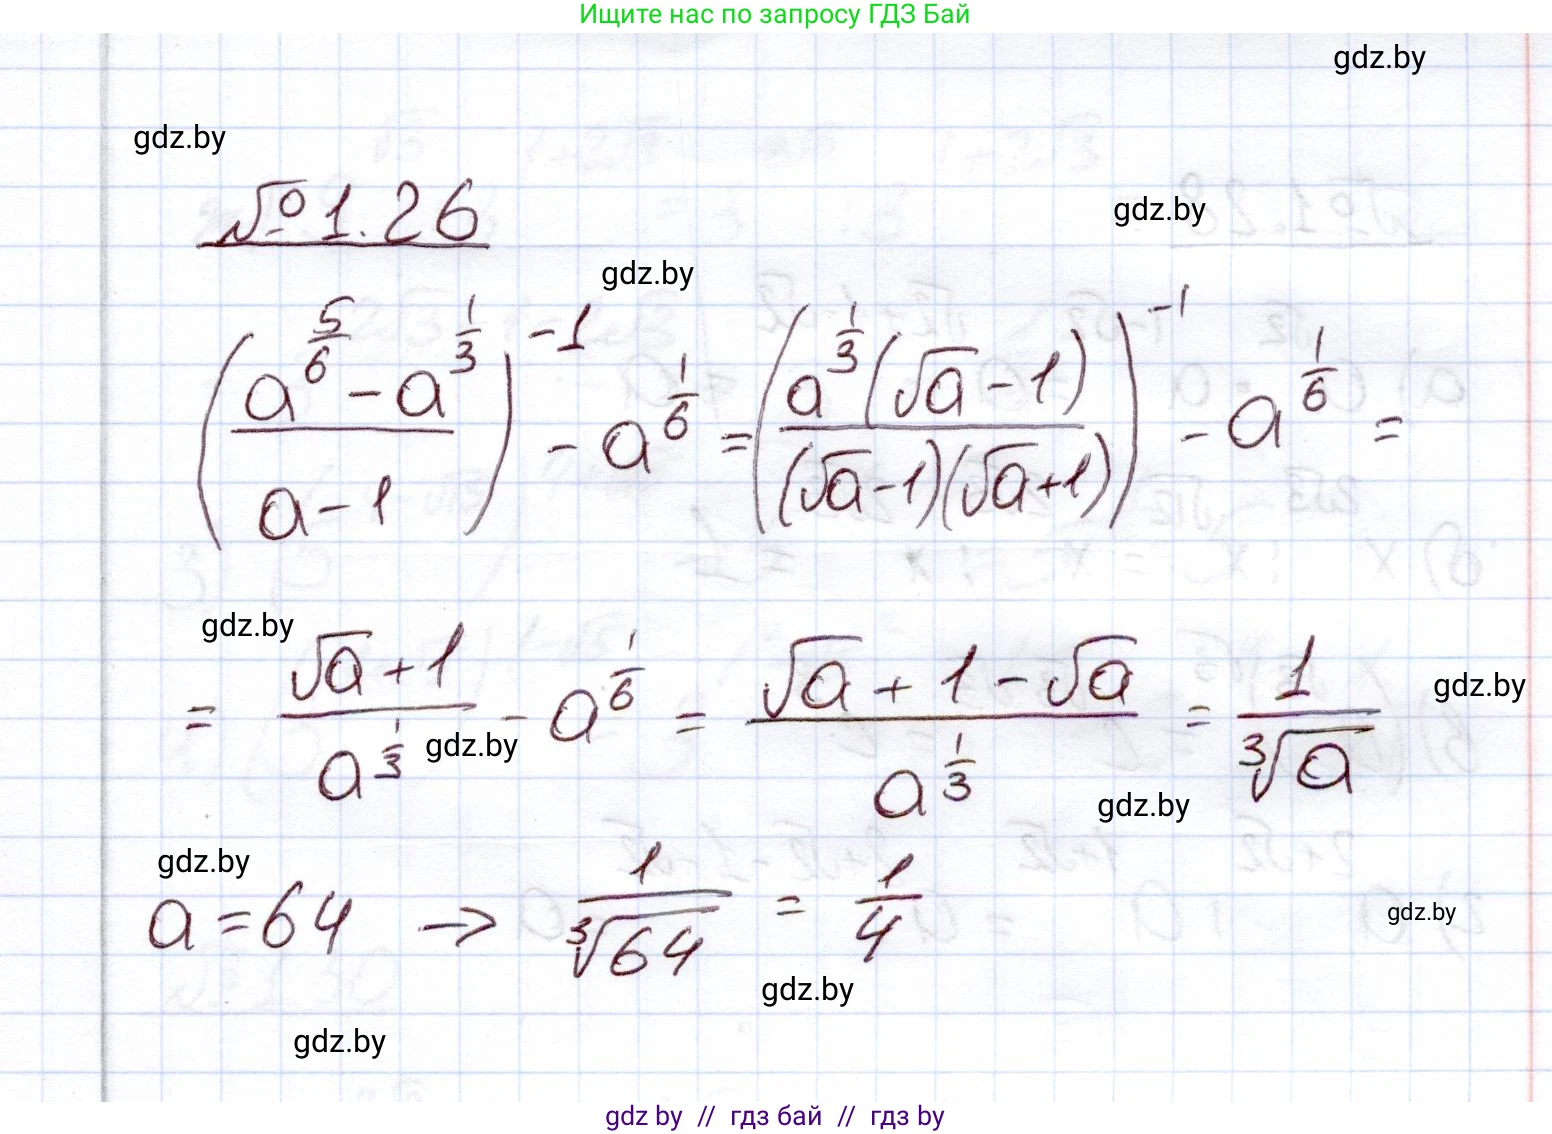 Ищите нас по запросу ГДЗ Бай
gdz.by
gdz.by
№ 1.26
gdz.by
gdz.by
(a^(5/6) - a^(1/3) / a - 1)^(-1) - a^(1/6) = (a^(1/3)(√a - 1) / (√a - 1)(√a + 1))^(-1) - a^(1/6) =
gdz.by
= √a + 1 / a^(1/3) - a^(1/6) = √a + 1 - √a / a^(1/3) = 1 / ∛a
gdz.by
gdz.by
gdz.by
gdz.by
a = 64 → 1 / ∛64 = 1 / 4
gdz.by
gdz.by
gdz.by
gdz by // гдз бай // гдз by